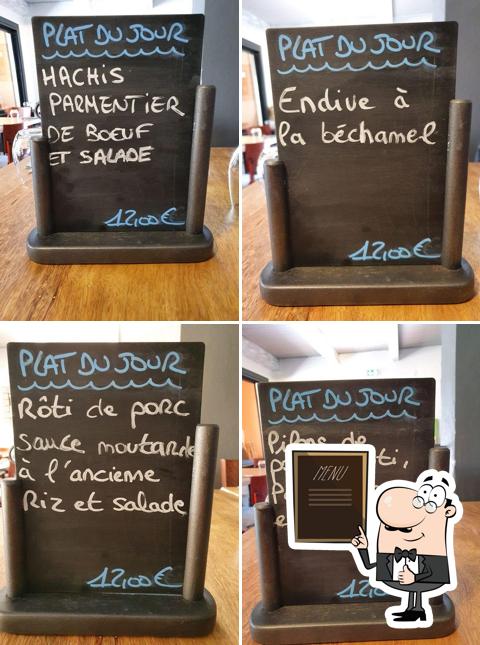 PLAT DU JOUR
HACHIS
PARMENTIER
DE BOEUF
ET SALADE
12,00€
PLAT DU JOUR
Endive à
la béchamel
12,00€
PLAT DU JOUR
Rôti de porc
sauce moutarde
à l'ancienne
Riz et salade
12,00€
PLAT DU JOUR
de
MENU